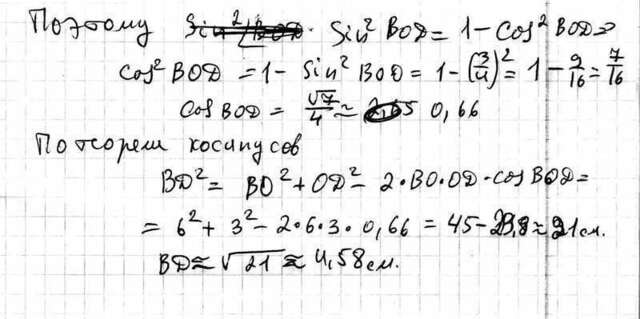 Поэтому Sin² BOD = 1 - cos² BOD ⇒
cos² BOD = 1 - Sin² BOD = 1 - (3/4)² = 1 - 9/16 = 7/16
cos BOD = √7/4 ≈ 0,66
По теорем косинусов
BD² = BO² + OD² - 2•BO•OD•cos BOD =
= 6² + 3² - 2•6•3•0,66 = 45 - 23,8 ≈ 21 см.
BD ≈ √21 ≈ 4,58 см.